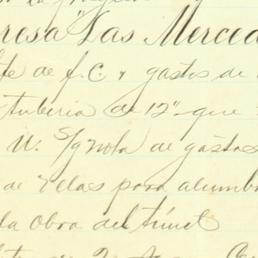 resa "Las Merced
te de f.C. y gastos de
tuberia de 12" que
N. S/nota de gastos
de velas para alumb
la obra del túnel
de